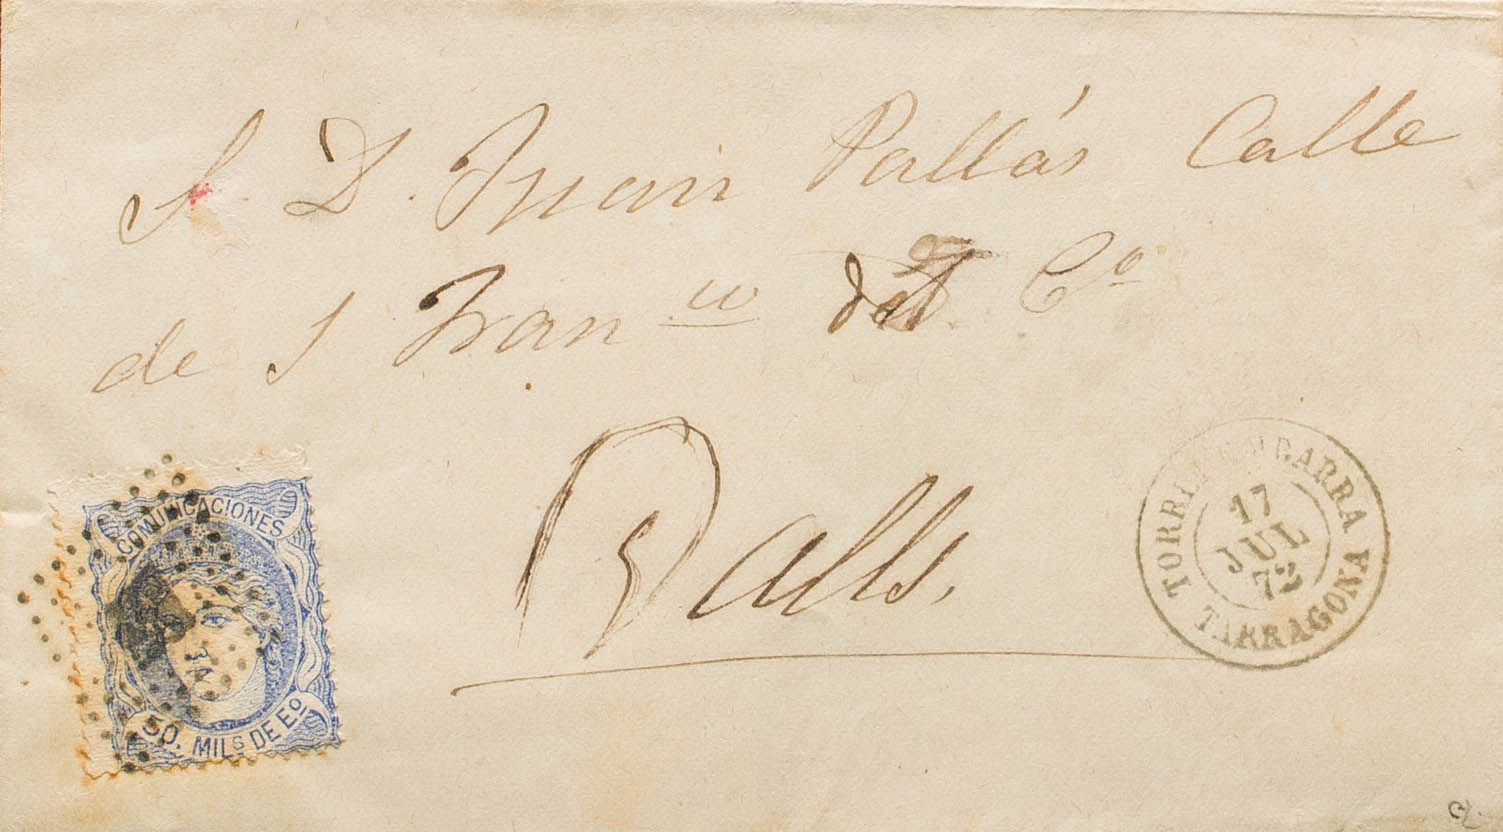 S. D. Juan Pallás Calle
de S Franco del Co
Valls.
COMUNICACIONES
50. MILS DE Eo
TORREDEMBARRA
17
JUL
72
TARRAGONA